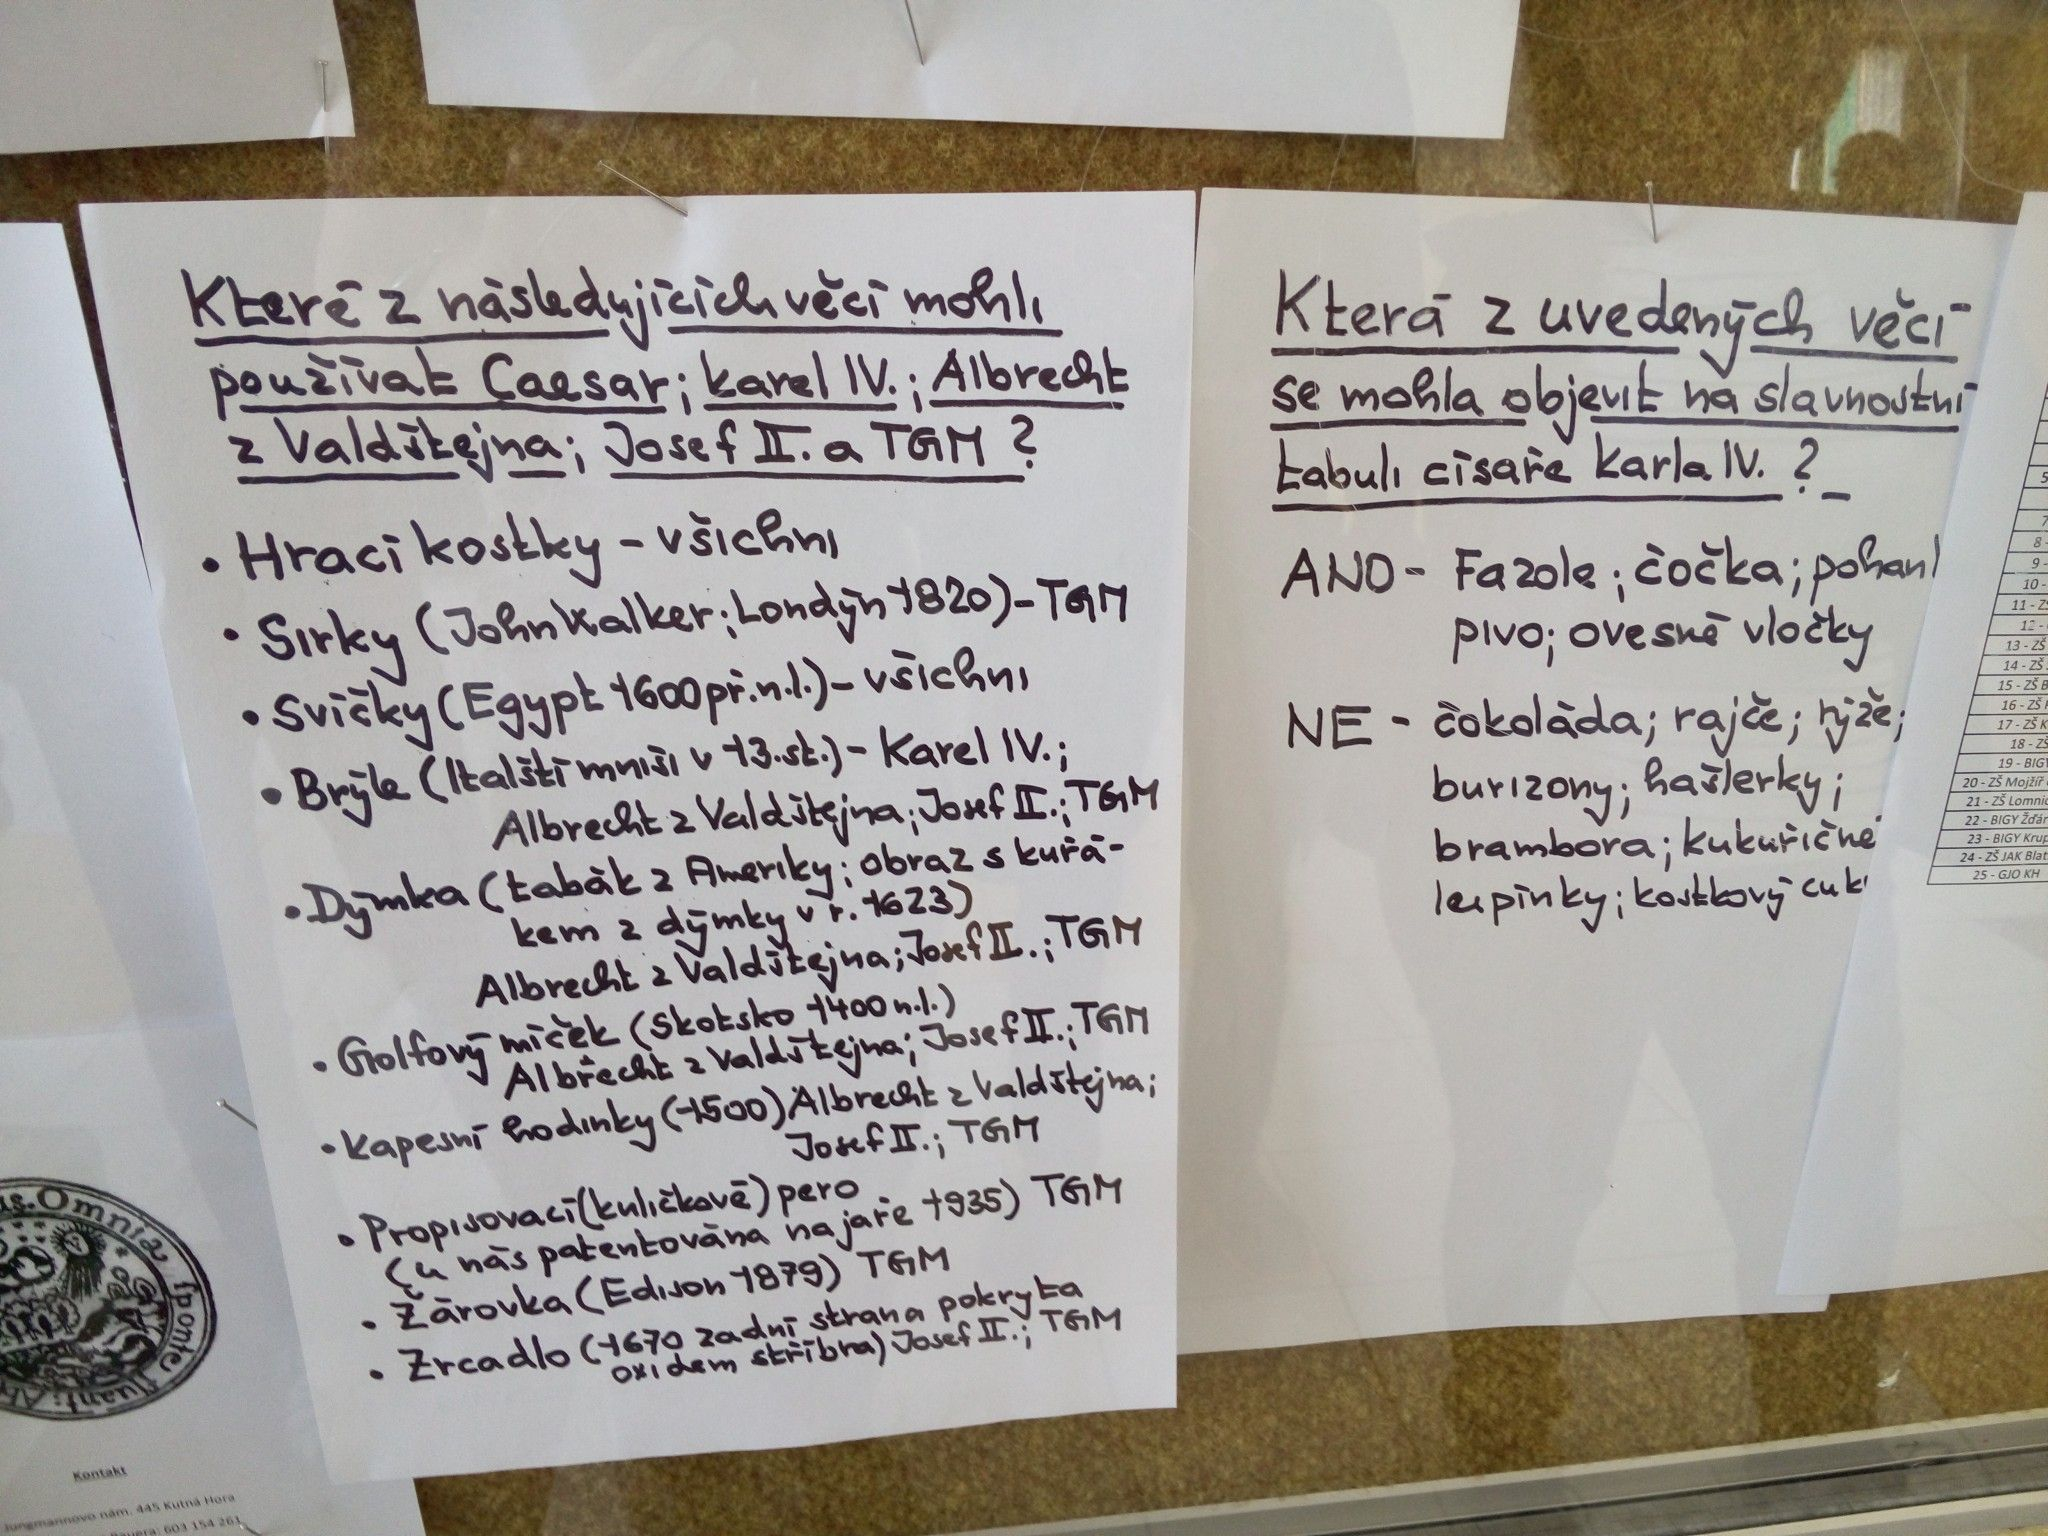 Které z následujících věcí mohli
používat Caesar; Karel IV.; Albrecht
z Valdštejna; Josef II. a TGM?
• Hrací kostky - všichni
• Sirky (John Walker; Londýn 1820) - TGM
• Svíčky (Egypt 1600 př.n.l.) - všichni
• Brýle (Italští mniši v 13.st.) - Karel IV.;
Albrecht z Valdštejna; Josef II.; TGM
• Dýmka (tabák z Ameriky; obraz s kuřá-
kem z dýmky v r. 1623)
Albrecht z Valdštejna; Josef II.; TGM
• Golfový míček (Skotsko 1400 n.l.)
Albrecht z Valdštejna; Josef II.; TGM
• Kapesní hodinky (1500) Albrecht z Valdštejna;
Josef II.; TGM
• Propisovací (kuličkové) pero
(u nás patentována na jaře 1935) TGM
• Žárovka (Edison 1879) TGM
• Zrcadlo (1670 zadní strana pokryta
oxidem stříbra) Josef II.; TGM
Která z uvedených věcí
se mohla objevit na slavnostní
tabuli císaře Karla IV.?
ANO - Fazole; čočka; pohan
pivo; ovesné vločky
NE - čokoláda; rajče; rýže;
burizony; hašlerky;
brambora; kukuřičné
lupínky; kostkový cuk
5
7
8 -
9 -
10 -
11 - ZŠ
12 -
13 - ZŠ
14 - ZŠ
15 - ZŠ B
16 - ZŠ
17 - ZŠ K
18 - ZŠ
19 - BIGY
20 - ZŠ Mojžíř
21 - ZŠ Lomnic
22 - BIGY Žďár
23 - BIGY Krup
24 - ZŠ JAK Blat
25 - GJO KH
us. Omnia sponte fluant:
Kontakt
Jungmannovo nám. 445 Kutná Hora
Bauera: 603 154 261